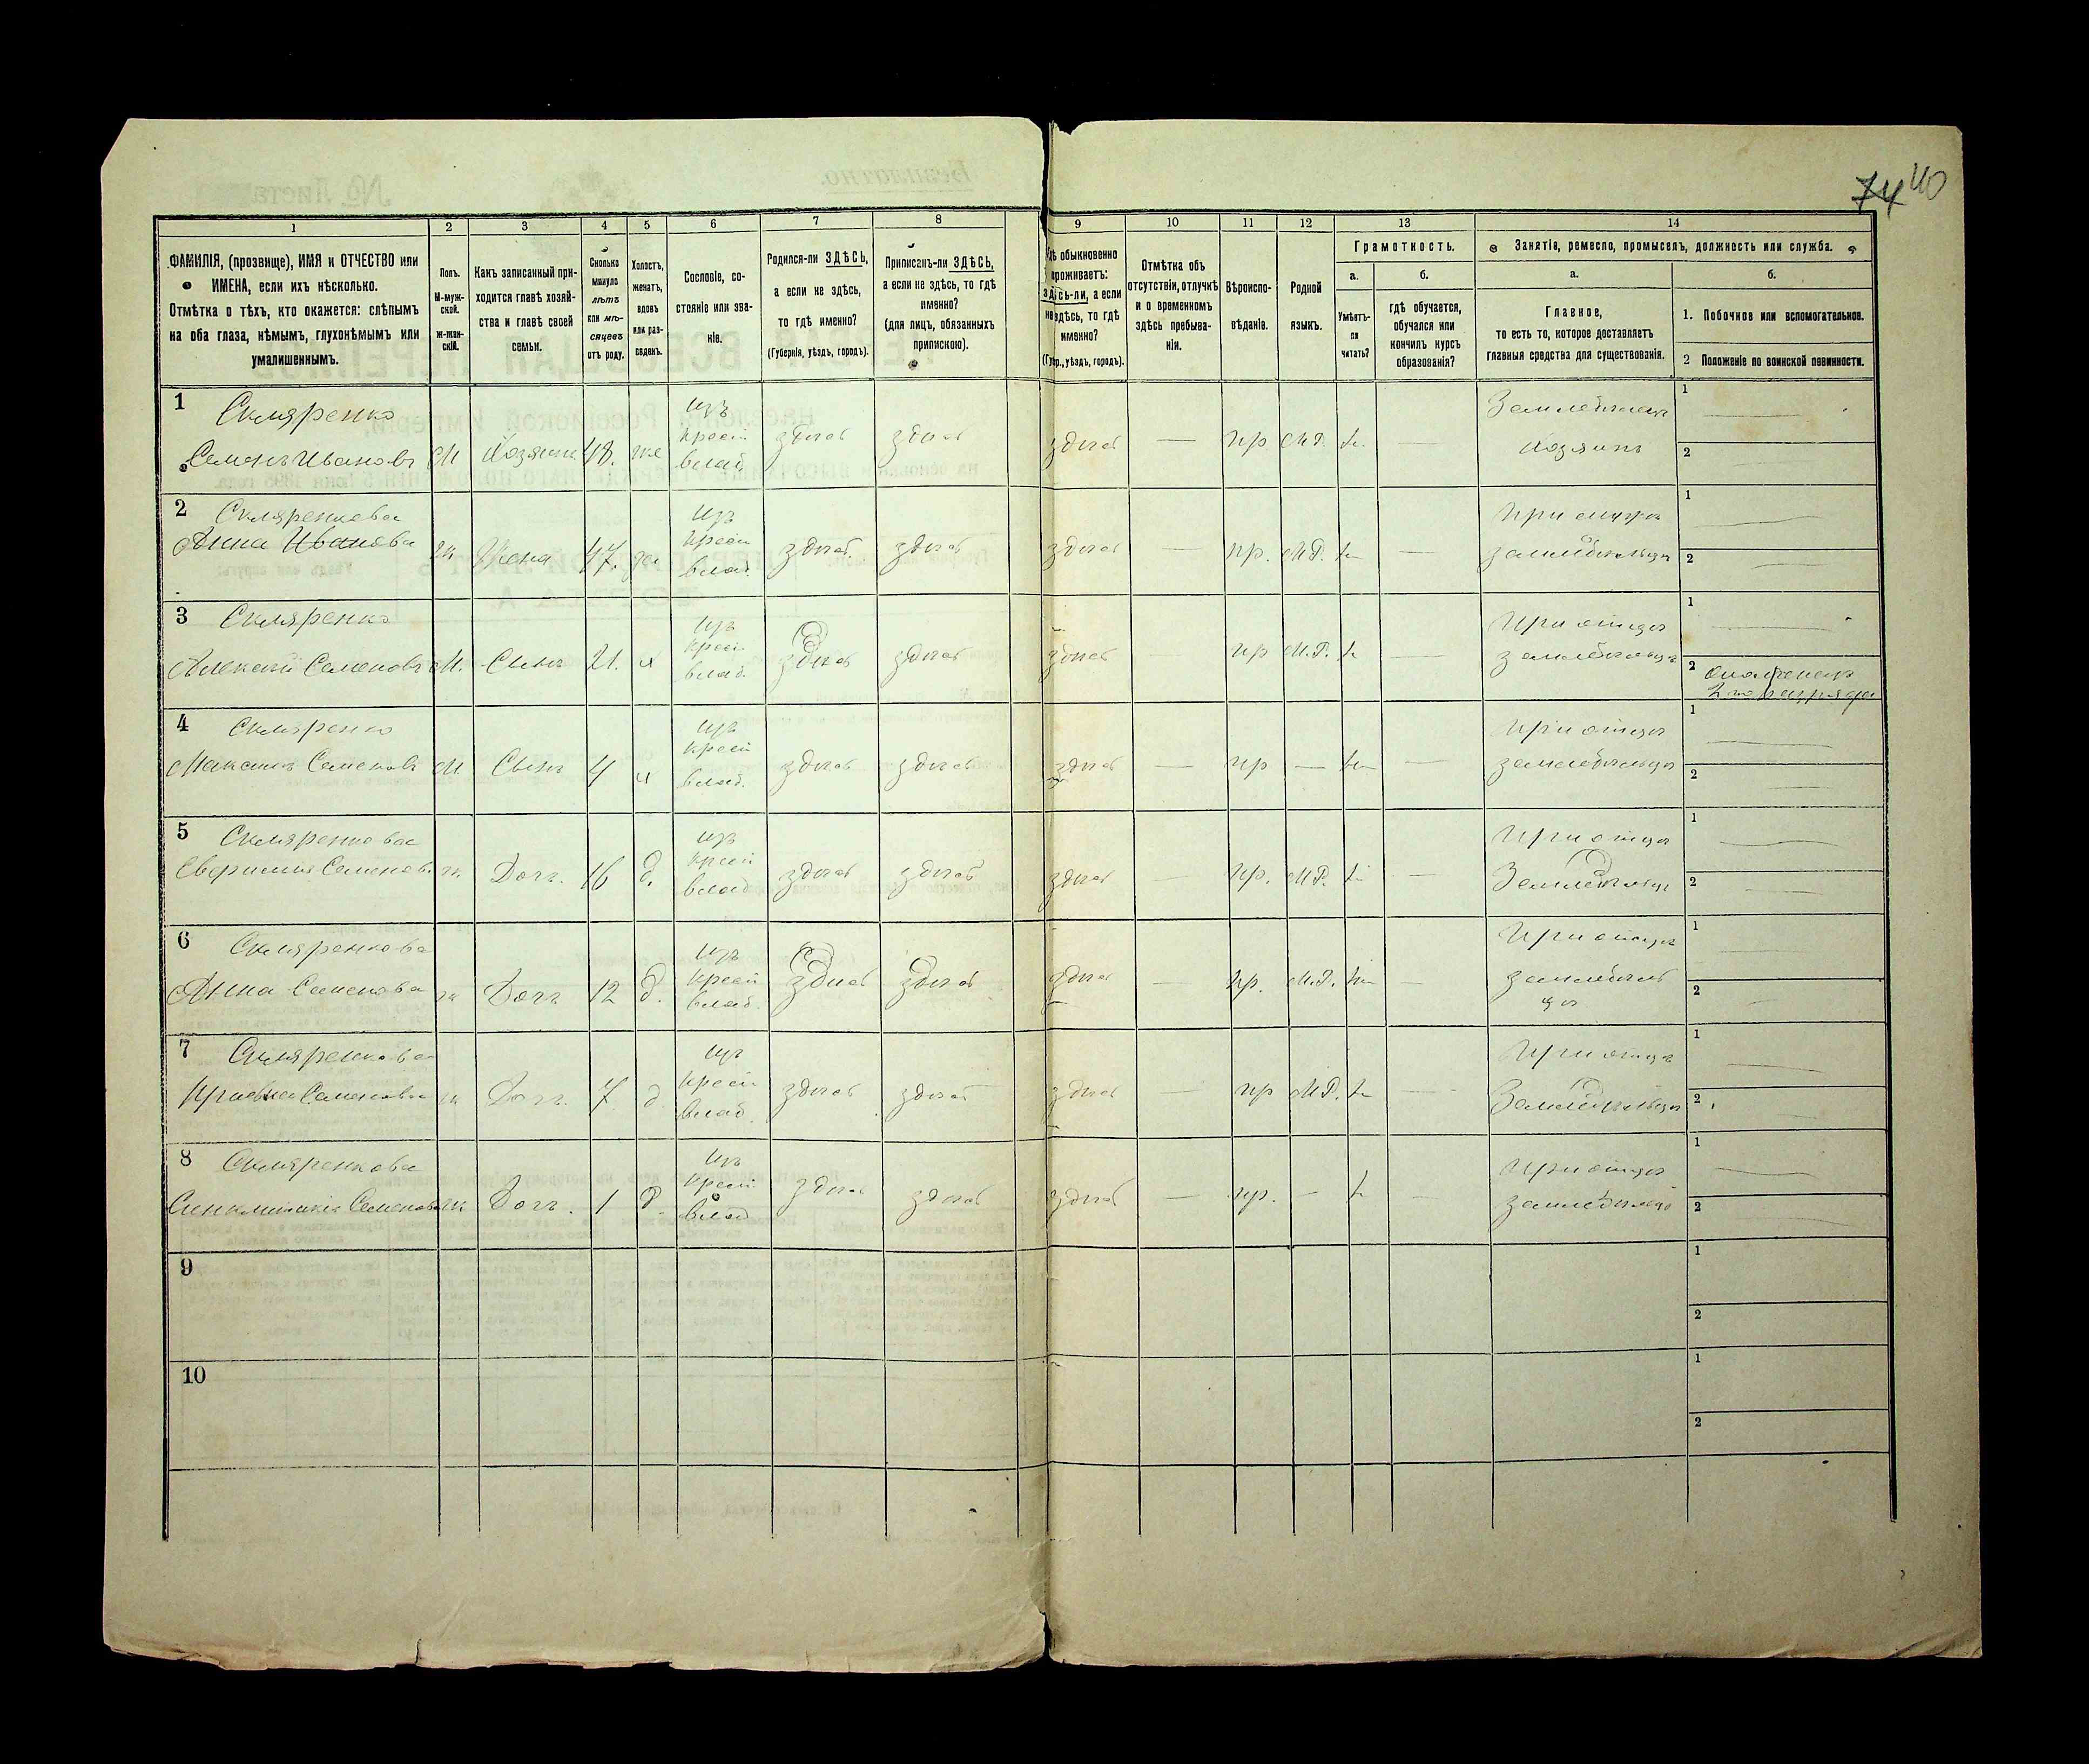 74 40
1 2 3 4 5 6 7 8 9 10 11 12 13 14
ФАМИЛІЯ, (прозвище), ИМЯ и ОТЧЕСТВО или
ИМЕНА, если ихъ нѣсколько.
Отмѣтка о тѣхъ, кто окажется: слѣпымъ
на оба глаза, нѣмымъ, глухонѣмымъ или
умалишеннымъ.
Полъ.
М-муж-
ской.
Ж-жен-
скій.
Какъ записанный при-
ходится главѣ хозяй-
ства и главѣ своей
семьи.
Сколько
минуло
лѣтъ
или мѣ-
сяцевъ
отъ роду.
Холостъ,
женатъ,
вдовъ
или раз-
веденъ.
Сословіе, со-
стояніе или зва-
ніе.
Родился-ли ЗДѢСЬ,
а если не здѣсь,
то гдѣ именно?
(Губернія, уѣздъ, городъ).
Приписанъ-ли ЗДѢСЬ,
а если не здѣсь, то гдѣ
именно?
(для лицъ, обязанныхъ
припискою).
Гдѣ обыкновенно
проживаетъ:
здѣсь-ли, а если
не здѣсь, то гдѣ
именно?
(Губер., уѣздъ, городъ).
Отмѣтка объ
отсутствіи, отлучкѣ
и о временномъ
здѣсь пребыва-
ніи.
Вѣроиспо-
вѣданіе.
Родной
языкъ.
Грамотность.
а.
Умѣетъ-
ли
читать?
б.
гдѣ обучается,
обучался или
кончилъ курсъ
образованія?
Занятіе, ремесло, промыселъ, должность или служба.
а.
Главное,
то есть то, которое доставляетъ
главныя средства для существованія.
б.
1. Побочное или вспомогательное.
2 Положеніе по воинской повинности.
1 Скляренко
Семенъ Ивановъ М Хозяинъ 48. же Изъ крест влад здѣсь здѣсь здѣсь — пр М.Р. н. — Земледѣлецъ Хозяинъ 1 — 2 —
2 Скляренкова
Анна Иванова ж Жена 47. за Изъ крест влад. здѣсь здѣсь здѣсь — пр. М.Р. н — При мужѣ земледѣльцѣ 1 — 2 —
3 Скляренко
Алексей Семеновъ М. Сынъ 21. х Изъ крест влад. здѣсь здѣсь здѣсь — пр М.Р. н — При отцѣ земледѣльцѣ 1 — 2 Ополченецъ
2го разряда
4 Скляренко
Максимъ Семеновъ М Сынъ 4 х Изъ крест влад. здѣсь здѣсь здѣсь — пр — н — При отцѣ земледѣльцѣ 1 — 2 —
5 Скляренкова
Семенов. ж Доч. 16 д. Изъ крест влад здѣсь здѣсь здѣсь — пр. М.Р. н — При отцѣ Земледѣльцѣ 1 — 2 —
6 Скляренкова
Анна Семенова ж Доч 12 д. Изъ крест влад. здѣсь здѣсь здѣсь — пр. М.Р. н — При отцѣ земледѣль
цѣ 1 — 2 —
7 Скляренкова
Семенова ж Доч. 7 д Изъ крест влад. здѣсь здѣсь здѣсь — пр М.Р. н — При отцѣ Земледѣльцѣ 1 — 2 —
8 Скляренкова
Семенова ж Доч. 1 д. Изъ крест влад здѣсь здѣсь здѣсь — пр. — н — При отцѣ земледѣльцѣ 1 — 2 —
9 1 2
10 1 2